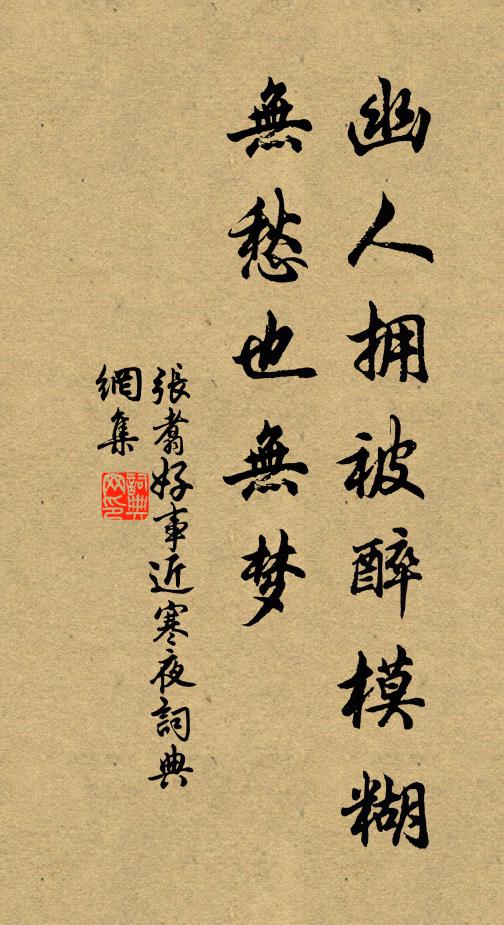 幽人拥被醉模糊
無愁也無梦
張翥好事近寒夜詞典
網集
詞典网印